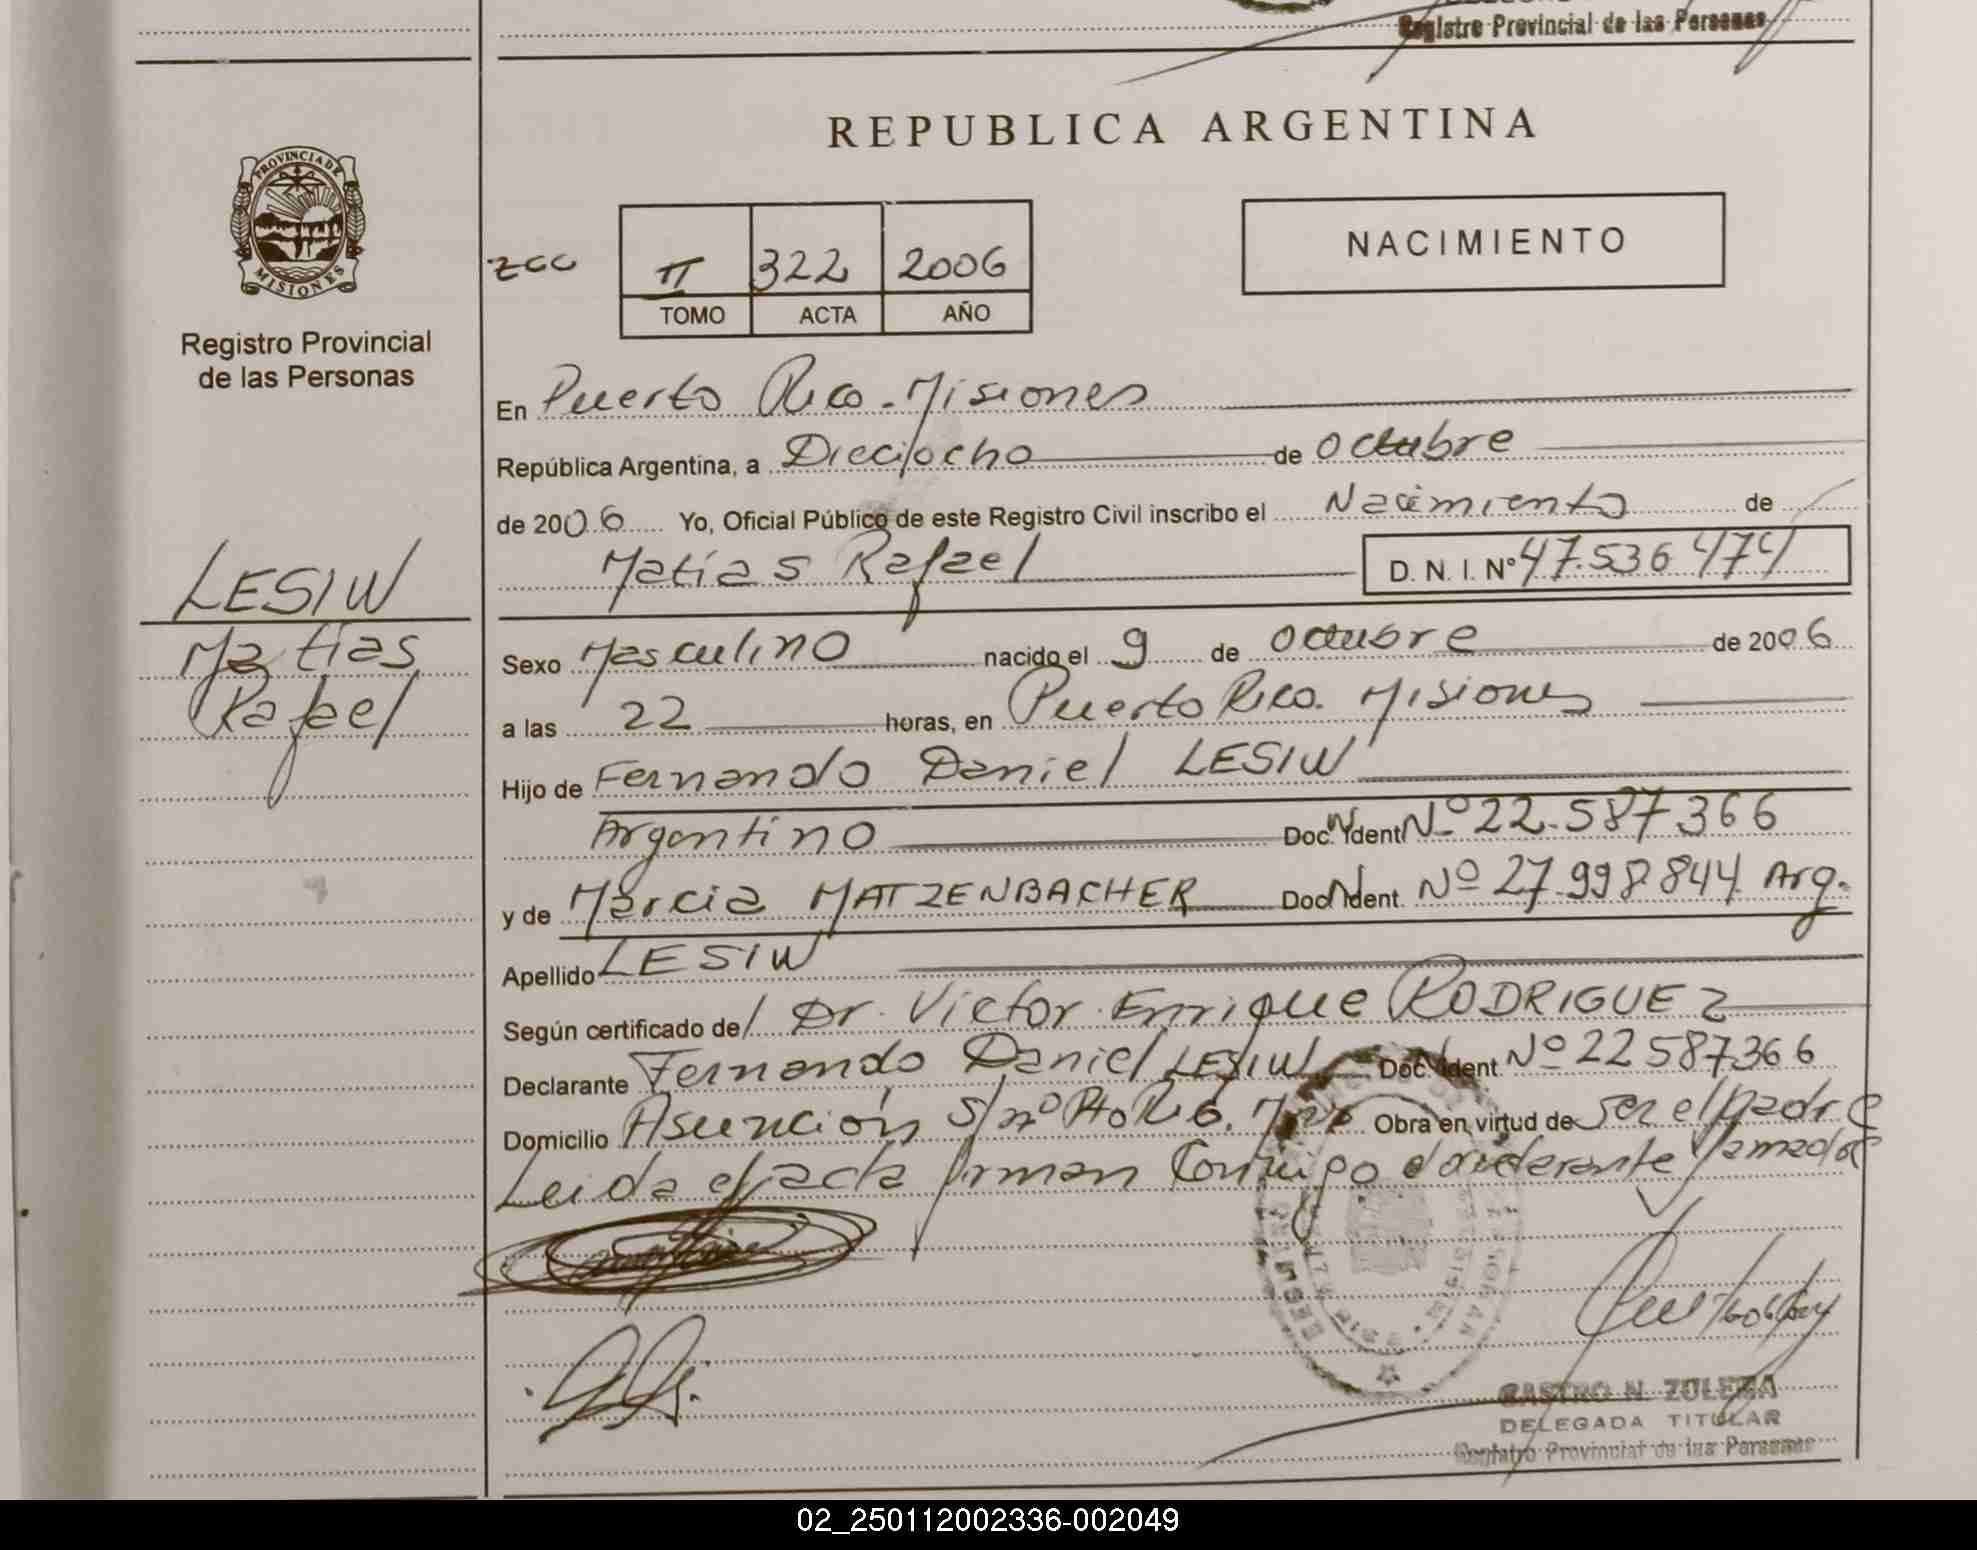 Registro Provincial de las Personas
REPUBLICA ARGENTINA
PROVINCIA DE
MISIONES
Registro Provincial
de las Personas
II 322 2006
TOMO ACTA AÑO
NACIMIENTO
En Puerto Rico. Misiones
República Argentina, a Dieciocho de Octubre
de 2006 Yo, Oficial Público de este Registro Civil inscribo el Nacimiento de
Matías Rafael D. N. I. Nº 47.536.474
LESIW
Matías
Rafael
Sexo Masculino nacido el 9 de Octubre de 2006
a las 22 horas, en Puerto Rico. Misiones
Hijo de Fernando Daniel LESIW
Argentino Doc. Ident Nº 22.587.366
y de Marcia MATZENBACHER Doc. Ident. Nº 27.998.844 Arg.
Apellido LESIW
Según certificado del Dr. Victor Enrique RODRIGUEZ
Declarante Fernando Daniel LESIW Doc. Ident Nº 22587366
Domicilio Asunción s/nº Pto Rico. Obra en virtud de ser el padre
Leida el acta firman Conmigo el declarante
CASTRO N. ZULEMA
DELEGADA TITULAR
Registro Provincial de las Personas
02_250112002336-002049